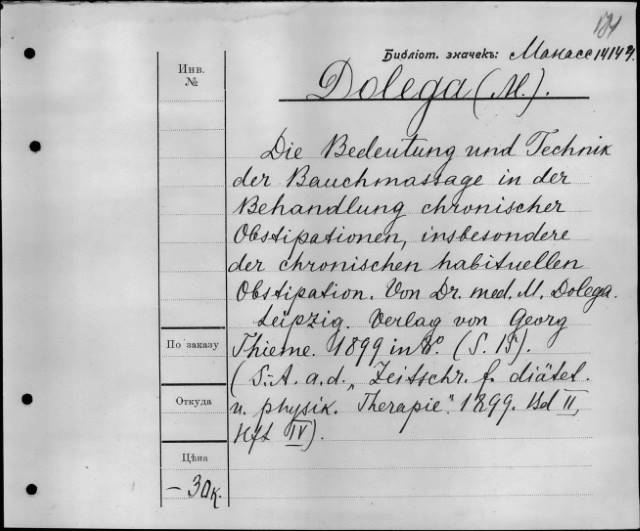 Библіот. значекъ: Манасс 14143.
Инв. №
Dolega (M.).
Die Bedeutung und Technik
der Bauchmassage in der
Behandlung chronischer
Obstipationen, insbesondere
der chronischen habituellen
Obstipation. Von Dr. med. M. Dolega.
Leipzig. Verlag von Georg
По заказу
Thieme. 1899 in 8°. (S. 15).
(S.-A. a. d. „Zeitschr. f. diätet.
Откуда
u. physik. Therapie". 1899. Bd II,
Hft IV).
Цѣна
– 30 к.